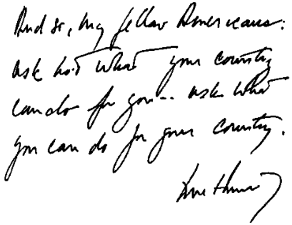 And so, my fellow Americans:
ask not what your country
can do for you -- ask what
you can do for your country.